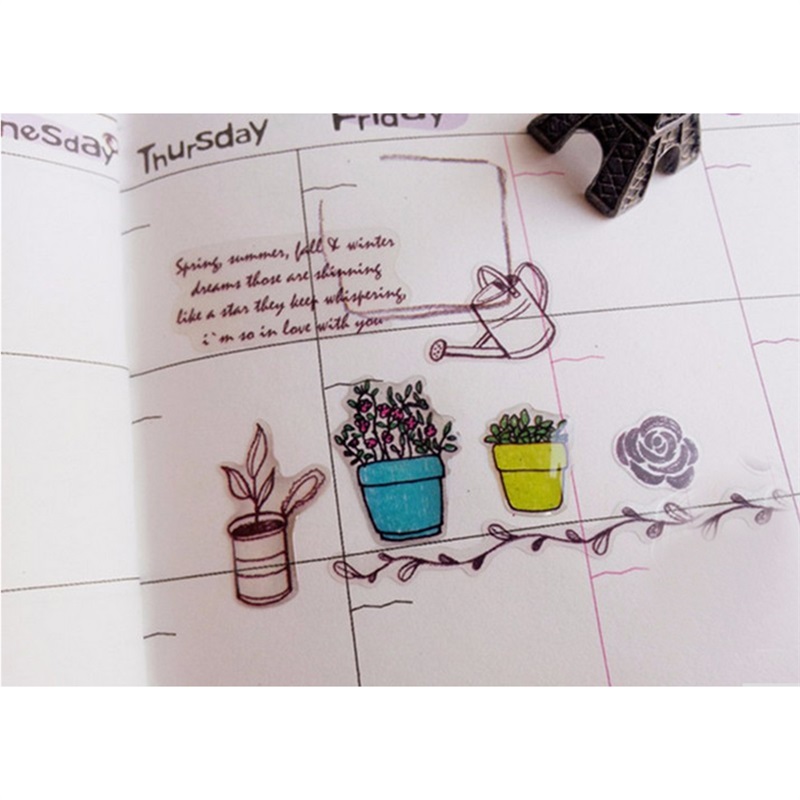 nesday
Thursday
Friday
Spring, summer, fall & winter
dreams those are shinning
like a star they keep whispering,
i`m so in love with you